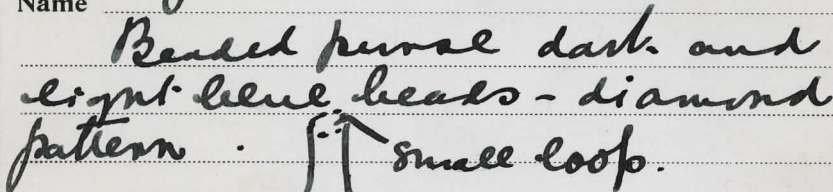 Name
Beaded purse dark and
light blue beads - diamond
pattern . small loop.